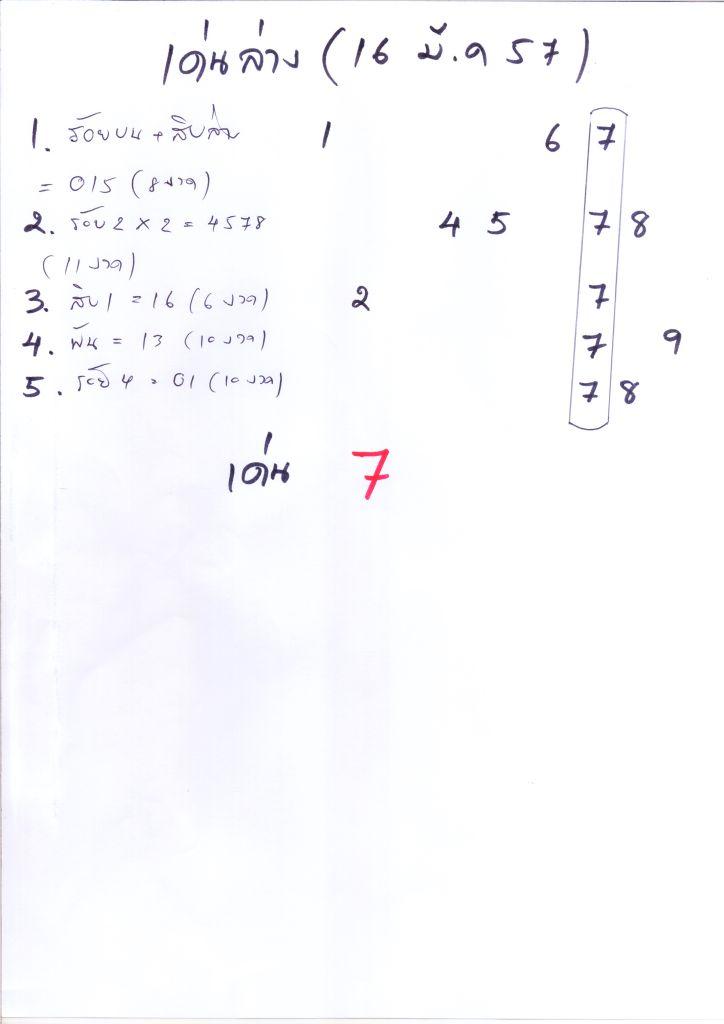 เด่นล่าง (16 มี.ค 57)
1. ร้อยบน + สิบล่าง 1 6 7
= 015 (8 งวด)
2. ร้อย 2 × 2 = 4578 4 5 7 8
(11 งวด)
3. สิบ 1 = 16 (6 งวด) 2 7
4. พัน = 13 (10 งวด) 7 9
5. ร้อย 4 = 01 (10 งวด) 7 8
เด่น 7